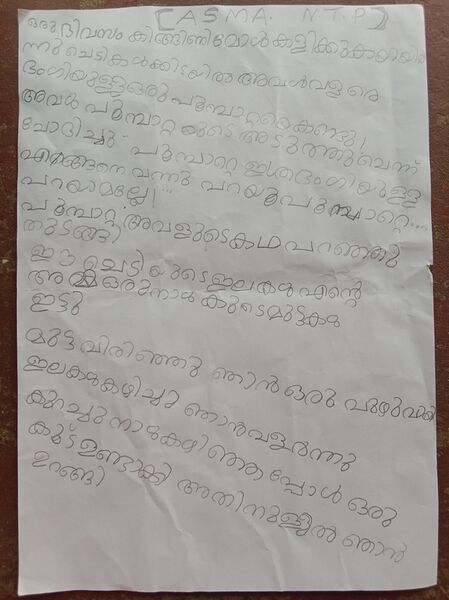 [ASMA. N.T.P]
ഒരു ദിവസം കിങ്ങിണിമോൾ കളിക്കുകയായിരു
ന്നു ചെടികൾക്കിടയിൽ അവൾ വളരെ
ഭംഗിയുള്ള ഒരു പൂമ്പാറ്റയെ കണ്ടു!
അവൾ പൂമ്പാറ്റയുടെ അടുത്തു ചെന്ന്
ചോദിച്ചു - പൂമ്പാറ്റെ ഇത്ര ഭംഗിയുള്ള
എങ്ങനെ വന്നു പറയൂ പൂമ്പാറ്റെ.....
പറയാമല്ലോ!...
പൂമ്പാറ്റ അവളുടെ കഥ പറഞ്ഞു
തുടങ്ങി
ഈ ചെടിയുടെ ഇലകൾ എന്റെ
അമ്മ ഒരുനാൾ കുടെ മുട്ടകൾ
ഇട്ടു
മുട്ട വിരിഞ്ഞു ഞാൻ ഒരു പുഴുവായി
ഇലകൾ കഴിച്ചു ഞാൻ വളർന്നു
കുറച്ചു നാൾ കഴിഞ്ഞപ്പോൾ ഒരു
കൂട് ഉണ്ടാക്കി അതിനുള്ളിൽ ഞാൻ
ഉറങ്ങി